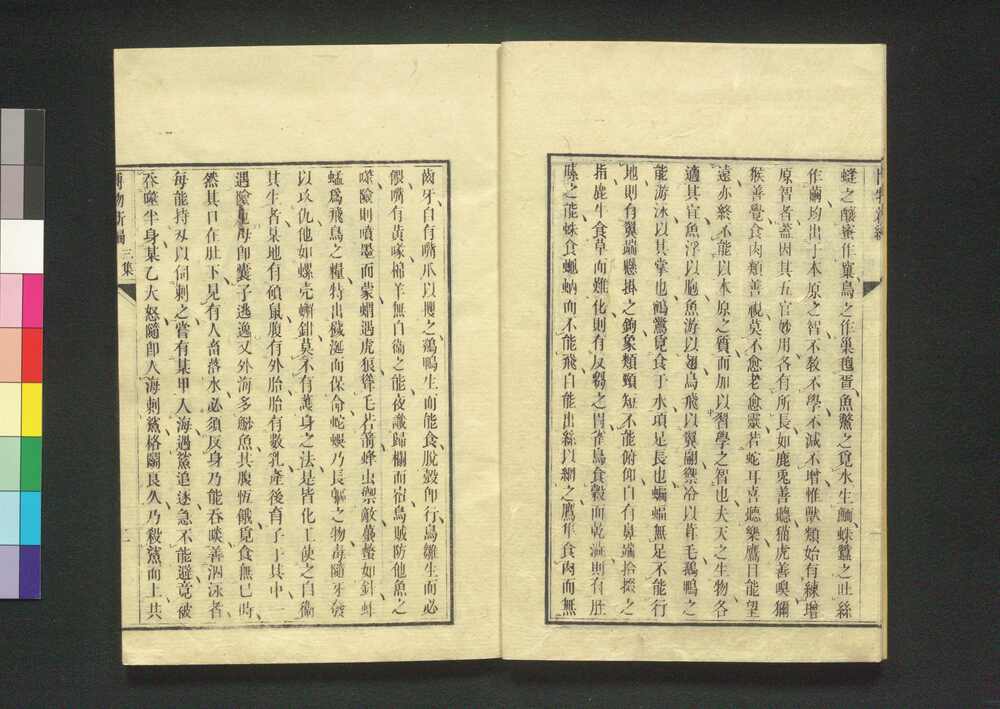 蜂之釀蜜作窠鳥之作巢毬胥魚鱉之覓水生鯆蛛蠶之吐絲
作繭均出于本原之智不敎不學不減不增惟獸類始有練增
原智者蓋因其五官妙用各有所長如鹿兎善聽猫虎善嗅獼
猴善覺食肉類善視莫不愈老愈靈若蛇耳喜聽樂鷹目能望
遠亦終不能以本原之質而加以習學之智也夫天之生物各
適其宜魚浮以胞魚游以翅鳥飛以翼翮禦冷以茸毛鵝鴨之
能游泳以其掌也鵁鷺覓食于水項足長也蝙蝠無足不能行
地則有翼端懸掛之鉤象類頸短不能俯仰自有鼻端拾掇之
指鹿牛食草而難化則有反芻之胃雀鳥食穀而乾澁則有肚
膆之能蛛食蠅蚋而不能飛自能出絲以網之鷹隼食肉而無
齒牙自有嘴爪以攫之鷄鴨生而能食脫殼卽行鳥雛生而必
餵嘴有黃啄綿羊無自衞之能夜識歸欄而宿烏賊防他魚之
噬險則噴墨而蒙蝟遇虎狼聳毛若箭蜂虫禦敵蠆螫如針蚜
蜢爲飛鳥之糧特出穢涎而保命蛇蜈乃長軀之物毒隨牙發
以攻仇他如螺壳蠏鉗莫不有護身之法是皆化工使之自衞
其生者某地有碩鼠腹有外胎胎有數乳產後育子于其中一
遇險也母卽囊子逃逸又外洵多鯊魚其腹恆餓覓食無已時
然其口在肚下見有人畜落水必須反身乃能呑啖善泅泳者
每能持刄以伺刺之嘗有某甲入海遇鯊追逐急不能避竟被
呑噬半身某乙大怒隨卽入海刺鯊格鬭良久乃殺鯊而上其
三集
二